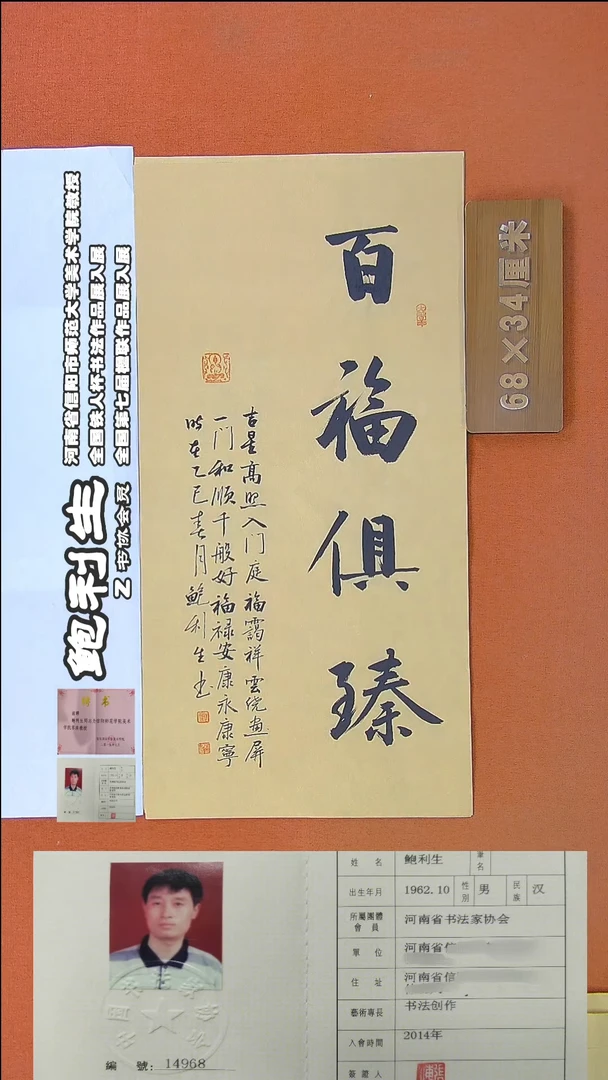 百福俱臻
吉星高照入门庭福霭祥雲绕画屏
一门和顺千般好福禄安康永康寧
时在乙巳春月鲍利生书
68×34厘米
河南省信阳市师范大学美术学院教授
全国农人杯书法作品展入展
全国第七届楹联作品展入展
鲍利生
Z书协会员
聘书
姓 名 鲍利生 筆名
出生年月 1962.10 性别 男 民族 汉
所屬團體會員 河南省书法家协会
單 位 河南省信
住 址 河南省信
藝術專長 书法创作
入會時間 2014年
簽證人
编 號: 14968